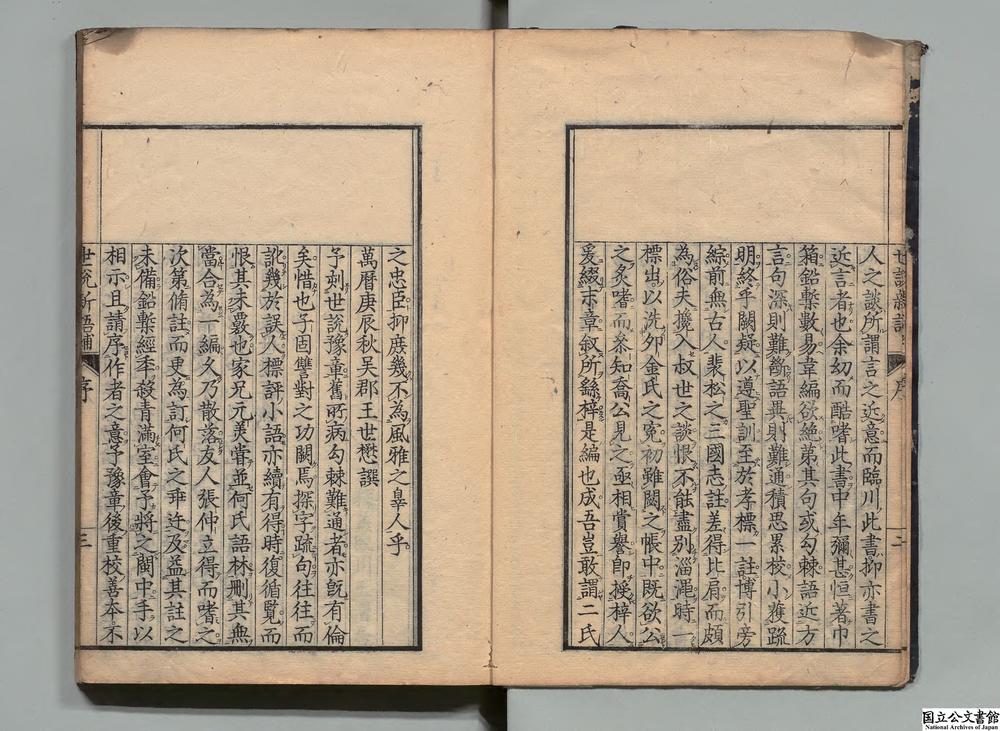 人之談所謂言之近意而臨川此書抑亦書之
近言者也余幼而酷嗜此書中年彌甚恒著巾
箱鉛槧數易韋編欲絶第其句或勾棘語近方
言句深則難斷語異則難通積思累校小獲疏
明終乎闕疑以遵聖訓至於孝標一註博引旁
綜前無古人裴松之三國志註差得比肩而頗
為俗夫攙入叔世之談恨不能盡別淄澠時一
標出以洗卯金氏之寃初雖閟之帳中既欲公
之炙嗜而參知喬公見之亟相賞譽即授梓人
爰綴末章叙所繇梓是編也成吾豈敢謂二氏
世說新語補
序
二
之忠臣抑庶幾不為風雅之辠人乎
萬曆庚辰秋吳郡王世懋譔
予刻世說豫章舊所病勾棘難通者亦旣有倫
矣惜也子固讐對之功闕焉探字疏句往往而
訛幾於誤人標評小語亦續有得時復循覽而
恨其未覈也家兄元美嘗並何氏語林刪其無
當合為一編久乃散落友人張仲立得而嗜之
次第脩註而更為訂何氏之乖迕及益其註之
未備鉛槧經年殺青滿室會予將之閩中手以
相示且請序作者之意予豫章後重校善本不
世說新語補
序
三
国立公文書館
National Archives of Japan